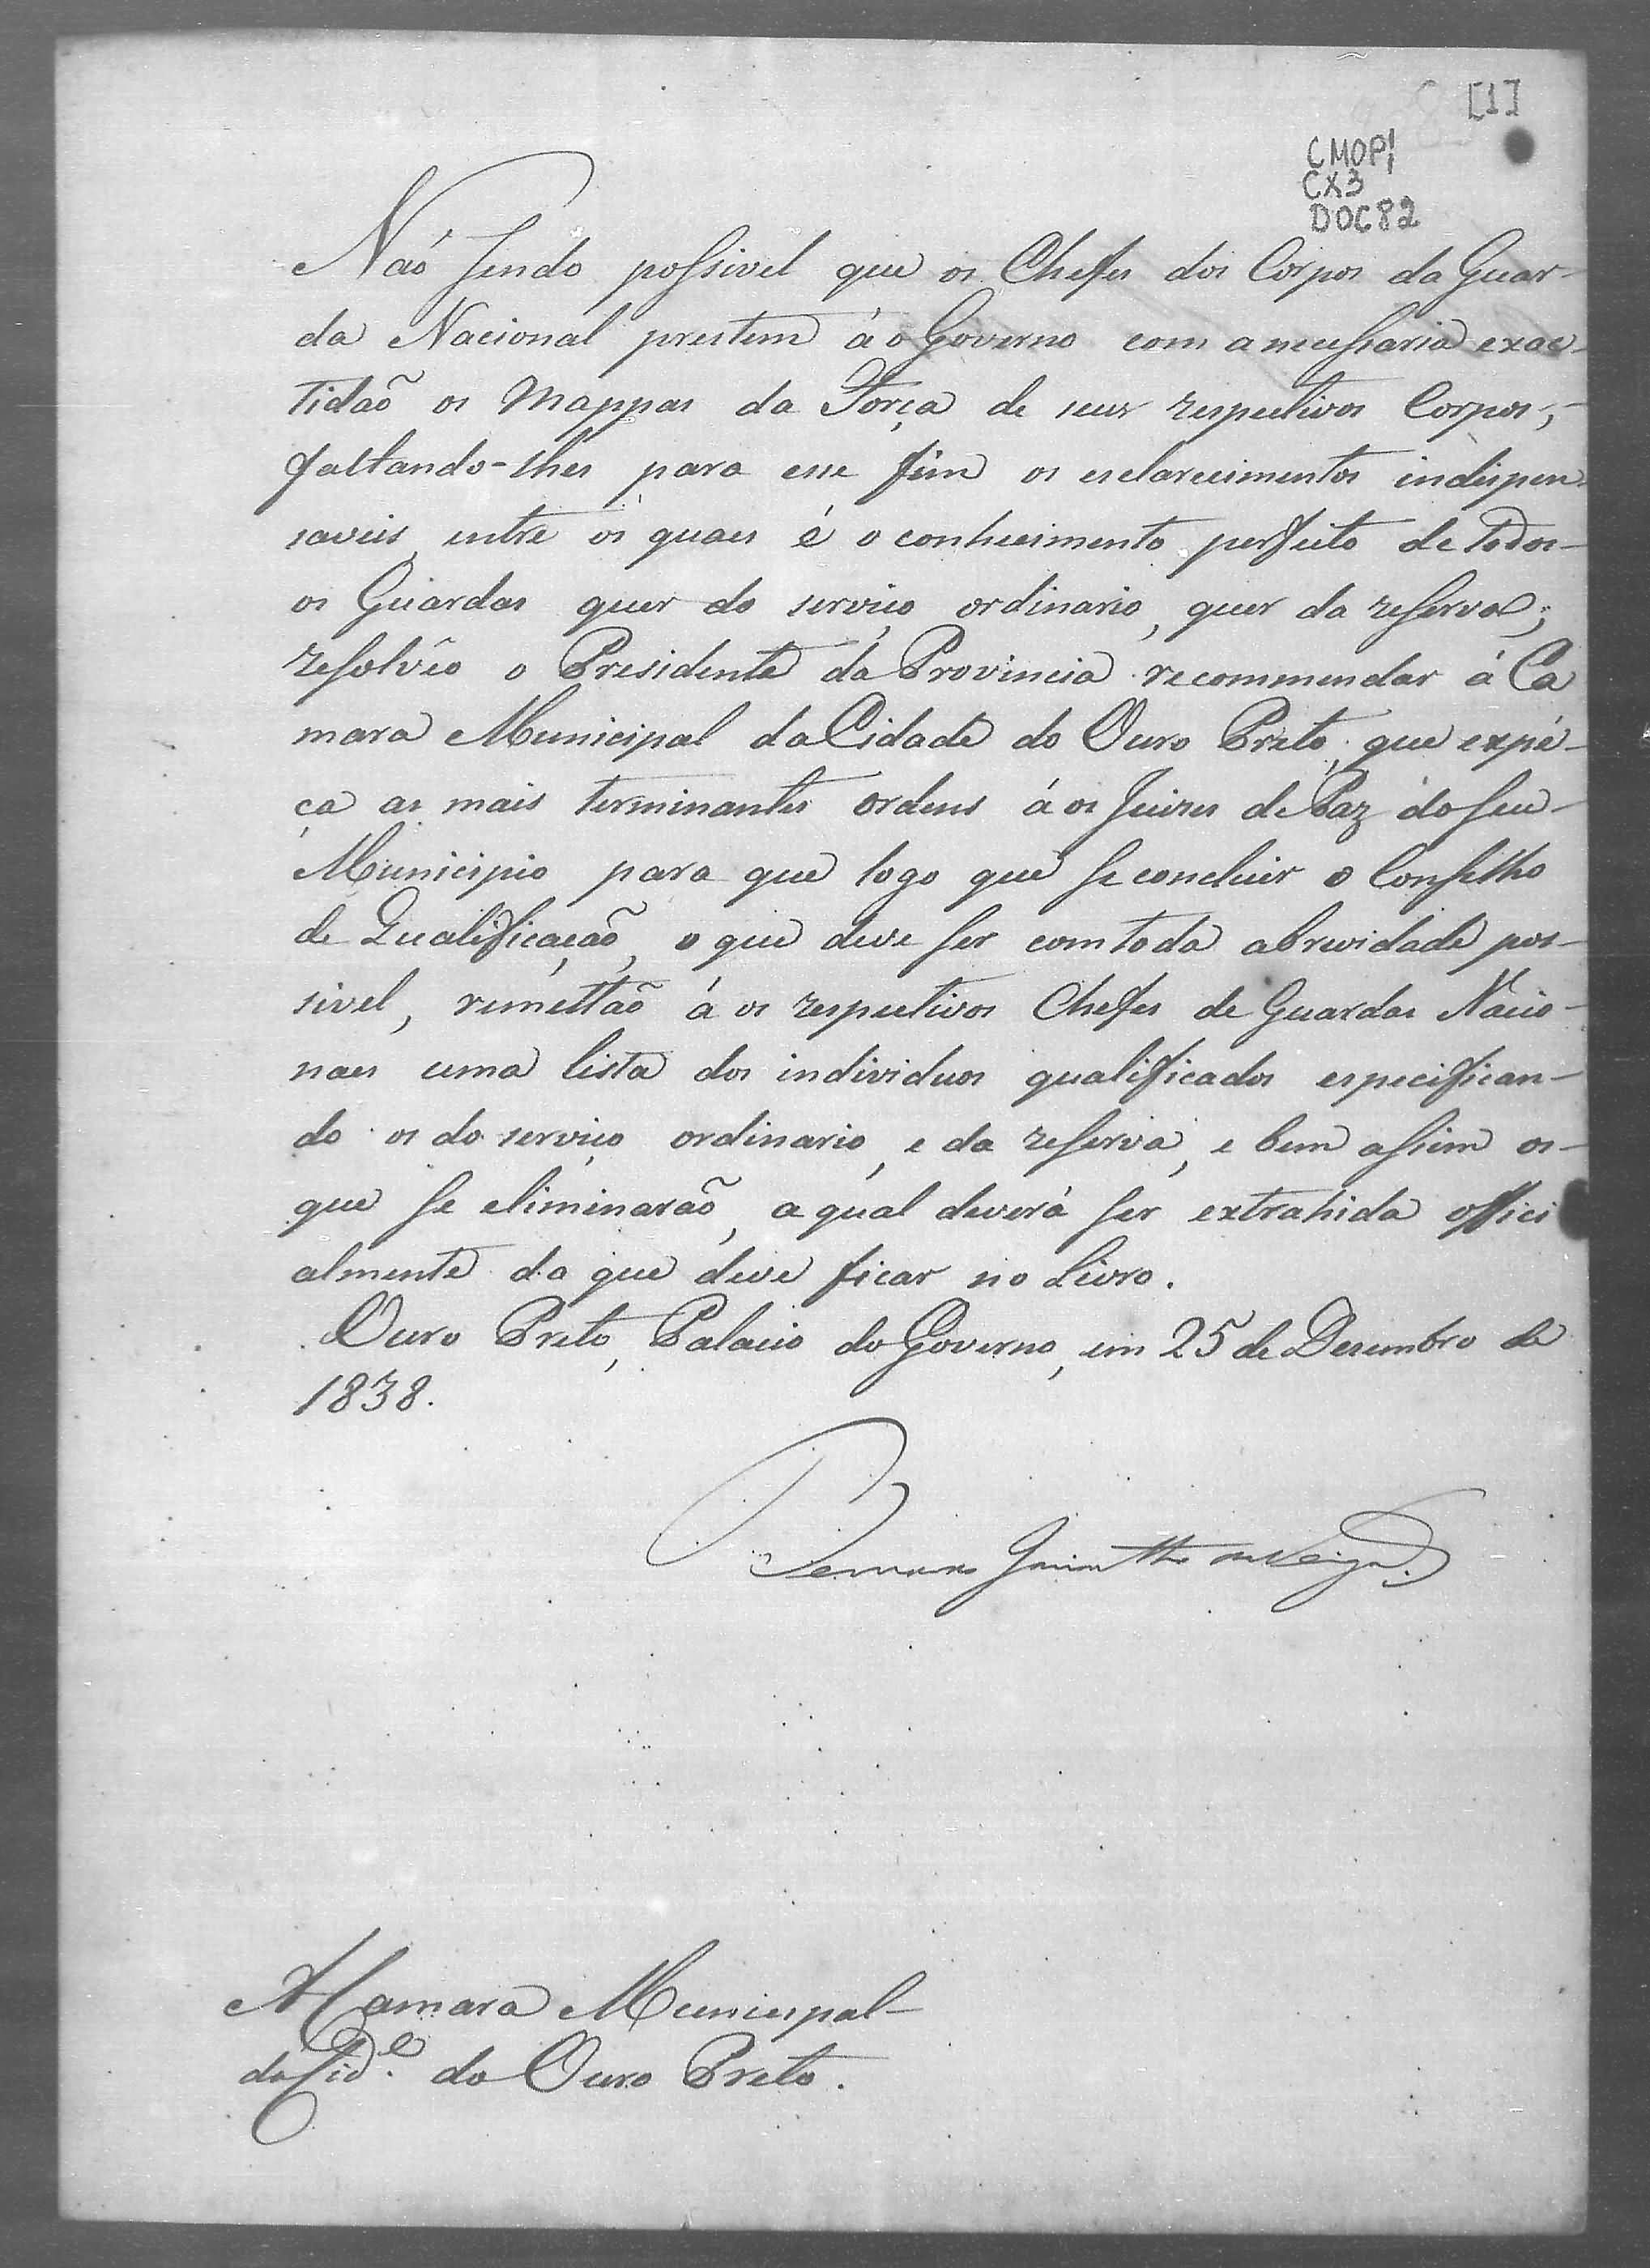 [1]
CMOP!
CX3
DOC82
Naõ sendo possivel que os Chefes dos Corpos da Guar-
da Nacional prestem á o Governo com a necessaria exac-
tidaõ os Mappas da Força de seus respectivos Corpos,
faltando-lhes para esse fim os esclarecimentos indispen-
saveis, entre os quaes é o conhecimento perfeito de todos
os Guardas quer do serviço ordinario, quer da reserva;
resolvêo o Presidente da Provincia recommendar á Ca
mara Municipal da Cidade do Ouro Preto, que expé-
ça as mais terminantes ordens á os Juizes de Paz do seu
Municipio para que logo que se concluir o Conselho
de Qualificaçaõ, o que deve ser com toda a brevidade pos-
sivel, remettaõ á os respectivos Chefes de Guardas Nacio-
naes uma lista dos individuos qualificados especifican-
do os do serviço ordinario, e da reserva, e bem assim os
que se eliminaraõ, a qual deverá ser extrahida offici
almente da que deve ficar no Livro.
Ouro Preto, Palacio do Governo, em 25 de Dezembro de
1838.
Bernardo Jacintho da Veiga.
Á Camara Municipal
da Cid.e do Ouro Preto.